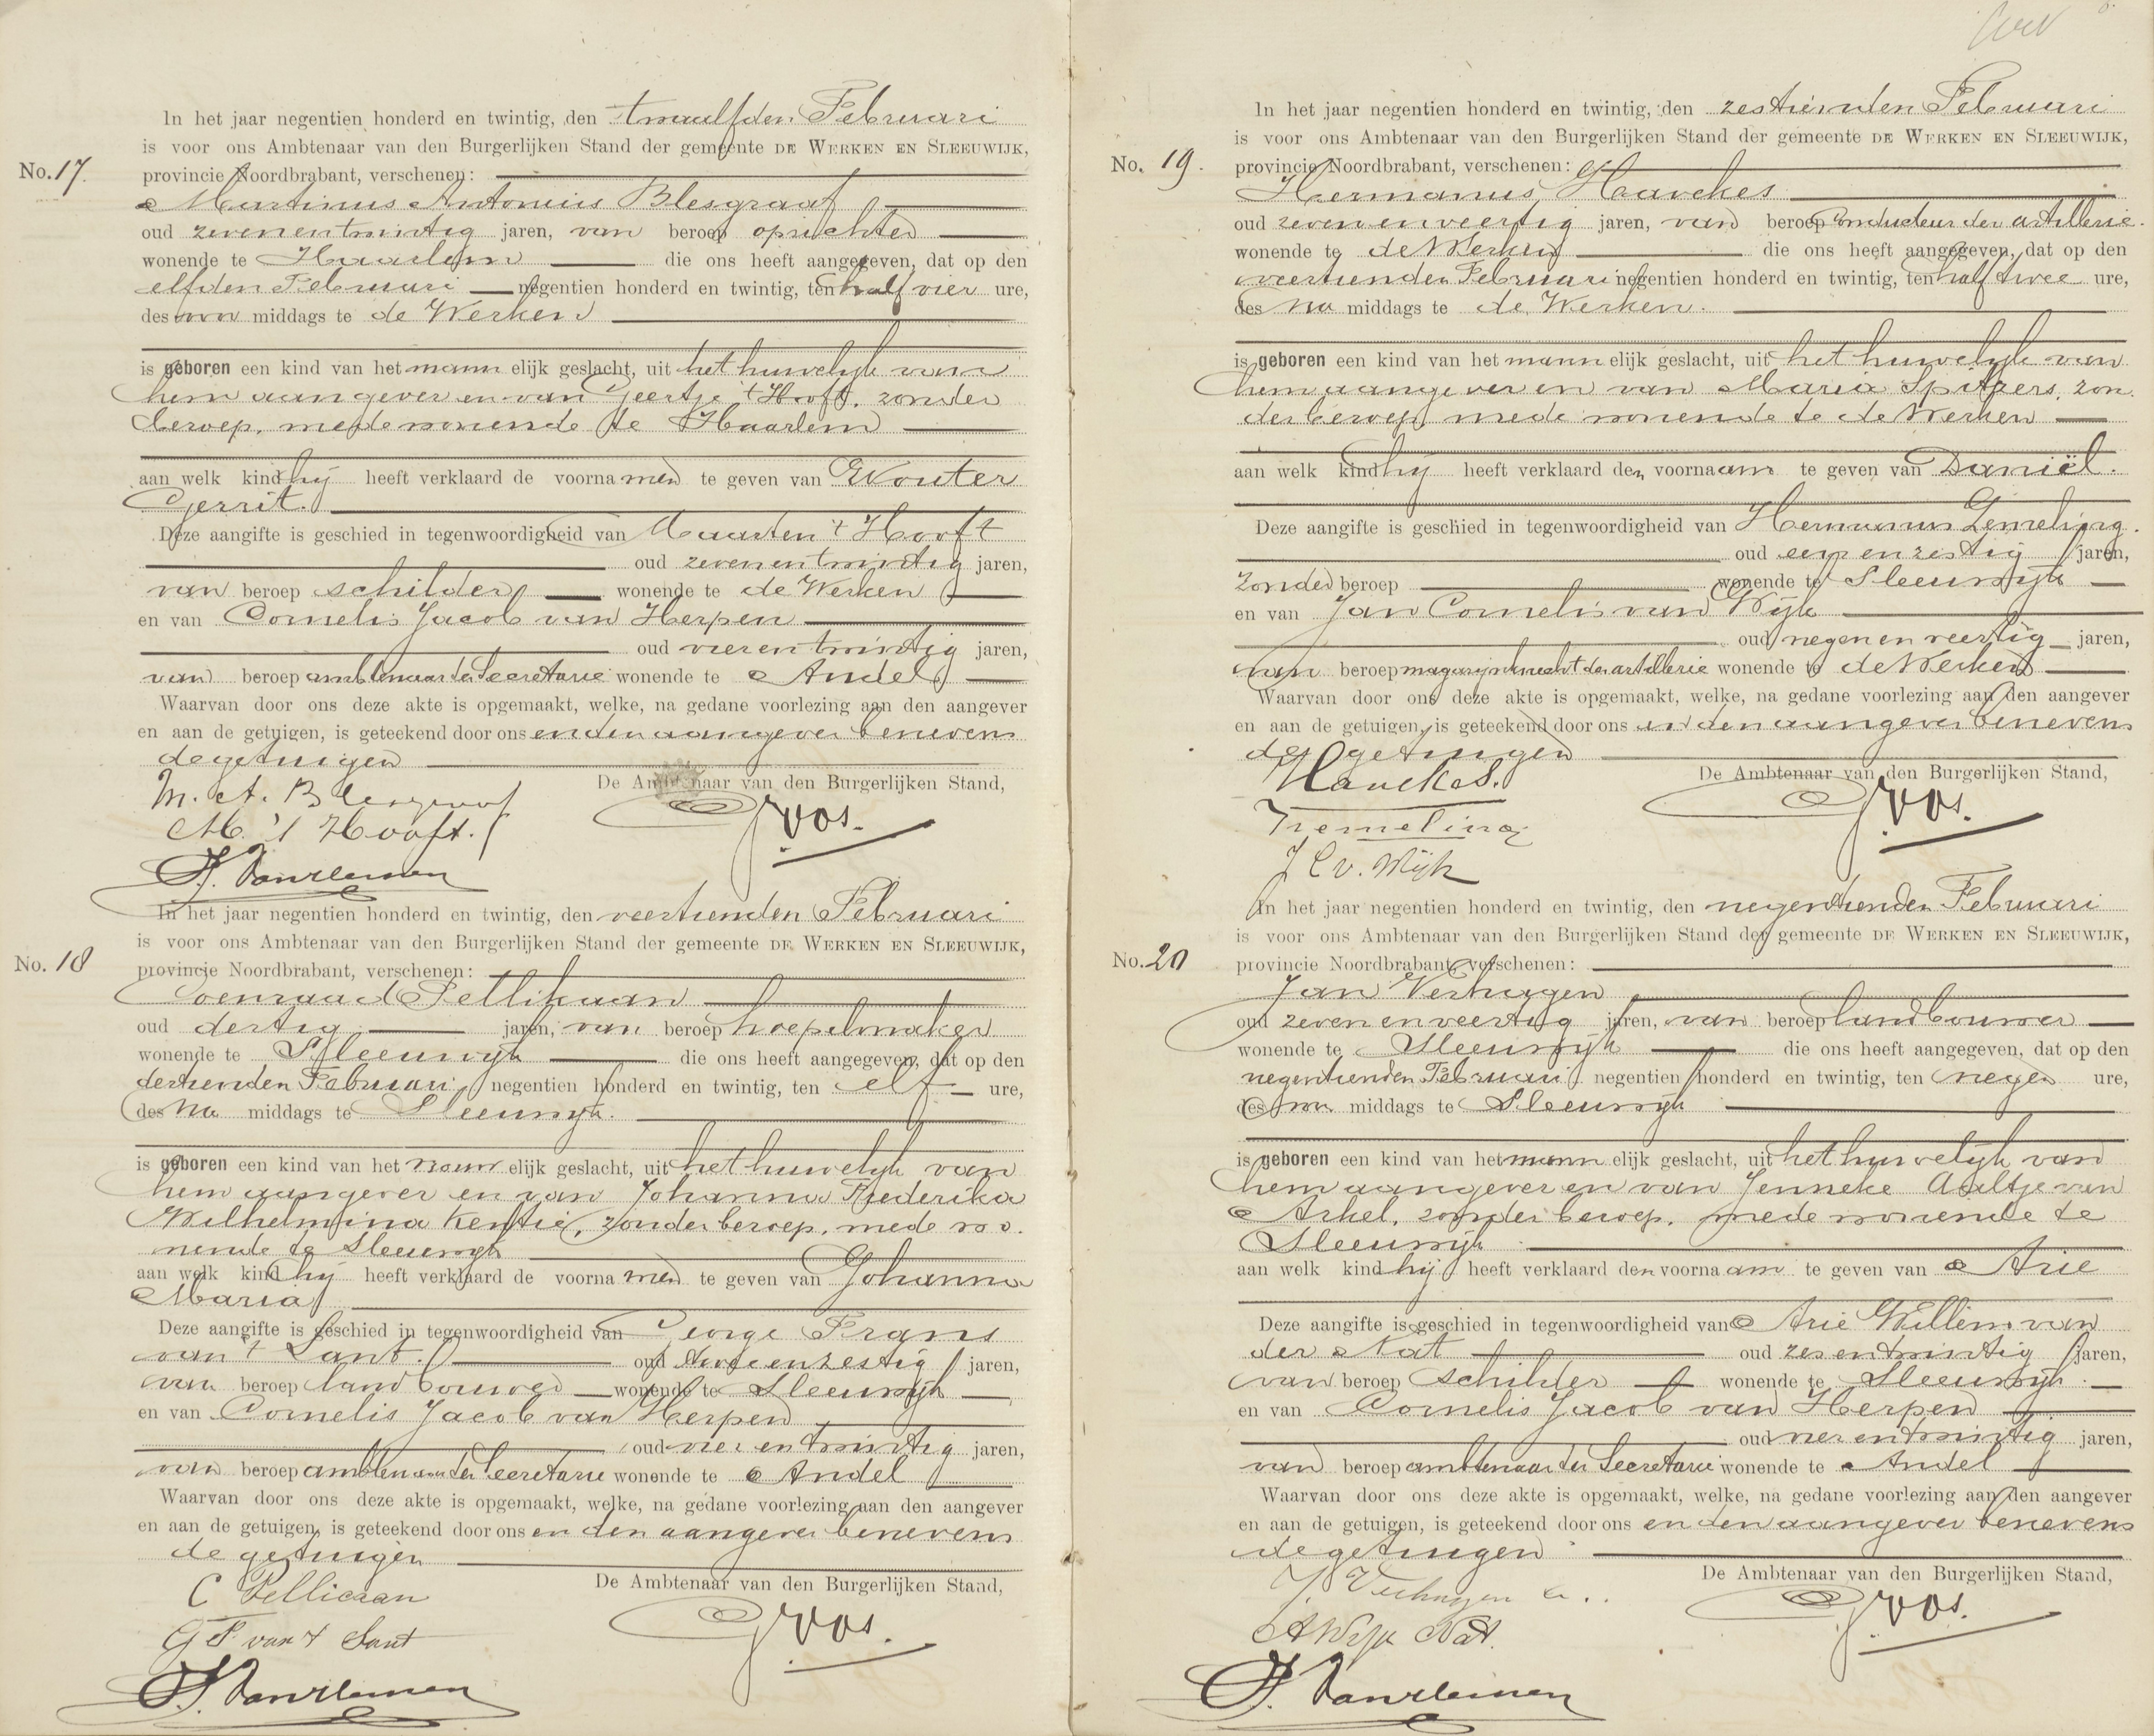 In het jaar negentien honderd en twintig, den twaalfden Februari
is voor ons Ambtenaar van den Burgerlijken Stand der gemeente DE WERKEN EN SLEEUWIJK,
No. 17. provincie Noordbrabant, verschenen:
Martinus Antonius Blesgraaf
oud zevenentwintig jaren, van beroep oprichter
wonende te Haarlem die ons heeft aangegeven, dat op den
elfden Februari negentien honderd en twintig, ten half vier ure,
des voor middags te de Werken
is geboren een kind van het mannelijk geslacht, uit het huwelijk van
hem aangever en van Geertje 't Hooft, zonder
beroep, mede wonende te Haarlem
aan welk kind hij heeft verklaard de voornamen te geven van Wouter
Gerrit.
Deze aangifte is geschied in tegenwoordigheid van Maarten 't Hooft
oud zevenentwintig jaren,
van beroep schilder wonende te de Werken
en van Cornelis Jacob van Herpen
oud vierentwintig jaren,
van beroep ambtenaar ter Secretarie wonende te Andel
Waarvan door ons deze akte is opgemaakt, welke, na gedane voorlezing aan den aangever
en aan de getuigen, is geteekend door ons en den aangever benevens
de getuigen
De Ambtenaar van den Burgerlijken Stand,
M. A. Blesgraaf
M. 't Hooft.
GVos.
In het jaar negentien honderd en twintig, den veertienden Februari
is voor ons Ambtenaar van den Burgerlijken Stand der gemeente DE WERKEN EN SLEEUWIJK,
No. 18 provincie Noordbrabant, verschenen:
Coenraad Pellikaan
oud dertig jaren, van beroep hoepelmaker
wonende te Sleeuwijk die ons heeft aangegeven, dat op den
dertienden Februari negentien honderd en twintig, ten elf ure,
des na middags te Sleeuwijk.
is geboren een kind van het vrouwelijk geslacht, uit het huwelijk van
hem aangever en van Johanna Frederika
Wilhelmina Kentie, zonder beroep, mede wo.
nende te Sleeuwijk
aan welk kind hij heeft verklaard de voornamen te geven van Johanna
Maria
Deze aangifte is geschied in tegenwoordigheid van George Frans
van 't Sant. oud tweeenzestig jaren,
van beroep landbouwer wonende te Sleeuwijk
en van Cornelis Jacob van Herpen
oud vierentwintig jaren,
van beroep ambtenaar ter Secretarie wonende te Andel
Waarvan door ons deze akte is opgemaakt, welke, na gedane voorlezing aan den aangever
en aan de getuigen, is geteekend door ons en den aangever benevens
de getuigen
De Ambtenaar van den Burgerlijken Stand,
C Pellicaan
G F van 't Sant
GVos.
In het jaar negentien honderd en twintig, den zestienden Februari
is voor ons Ambtenaar van den Burgerlijken Stand der gemeente DE WERKEN EN SLEEUWIJK,
No. 19. provincie Noordbrabant, verschenen:
Hermanus Hanckes
oud zevenenveertig jaren, van beroep Conducteur der artillerie.
wonende te de Werken die ons heeft aangegeven, dat op den
veertienden Februari negentien honderd en twintig, ten half twee ure,
des na middags te de Werken.
is geboren een kind van het mannelijk geslacht, uit het huwelijk van
hem aangever en van Maria Spitzers, zon.
der beroep, mede wonende te de Werken
aan welk kind hij heeft verklaard den voornaam te geven van Daniël.
Deze aangifte is geschied in tegenwoordigheid van Hermanus Gemeling.
oud eenenzestig jaren,
zonder beroep wonende te Sleeuwijk
en van Jan Cornelis van Wijk
oud negenenveertig jaren,
van beroep magazijnknecht der artillerie wonende te de Werken
Waarvan door ons deze akte is opgemaakt, welke, na gedane voorlezing aan den aangever
en aan de getuigen, is geteekend door ons en den aangever benevens
de getuigen
De Ambtenaar van den Burgerlijken Stand,
Hanckes.
J C v. Wijk
GVos.
In het jaar negentien honderd en twintig, den negentienden Februari
is voor ons Ambtenaar van den Burgerlijken Stand der gemeente DE WERKEN EN SLEEUWIJK,
No. 20 provincie Noordbrabant, verschenen:
Jan Verhagen
oud zevenenveertig jaren, van beroep landbouwer
wonende te Sleeuwijk die ons heeft aangegeven, dat op den
negentienden Februari negentien honderd en twintig, ten negen ure,
des voor middags te Sleeuwijk
is geboren een kind van het mannelijk geslacht, uit het huwelijk van
hem aangever en van Jenneke Aaltje van
Arkel, zonder beroep, mede wonende te
Sleeuwijk
aan welk kind hij heeft verklaard den voornaam te geven van Arie
Deze aangifte is geschied in tegenwoordigheid van Arie Willem van
der Nat oud zesentwintig jaren,
van beroep schilder wonende te Sleeuwijk.
en van Cornelis Jacob van Herpen
oud vierentwintig jaren,
van beroep ambtenaar ter Secretarie wonende te Andel
Waarvan door ons deze akte is opgemaakt, welke, na gedane voorlezing aan den aangever
en aan de getuigen, is geteekend door ons en den aangever benevens
de getuigen
De Ambtenaar van den Burgerlijken Stand,
J. Verhagen
Nat.
GVos.